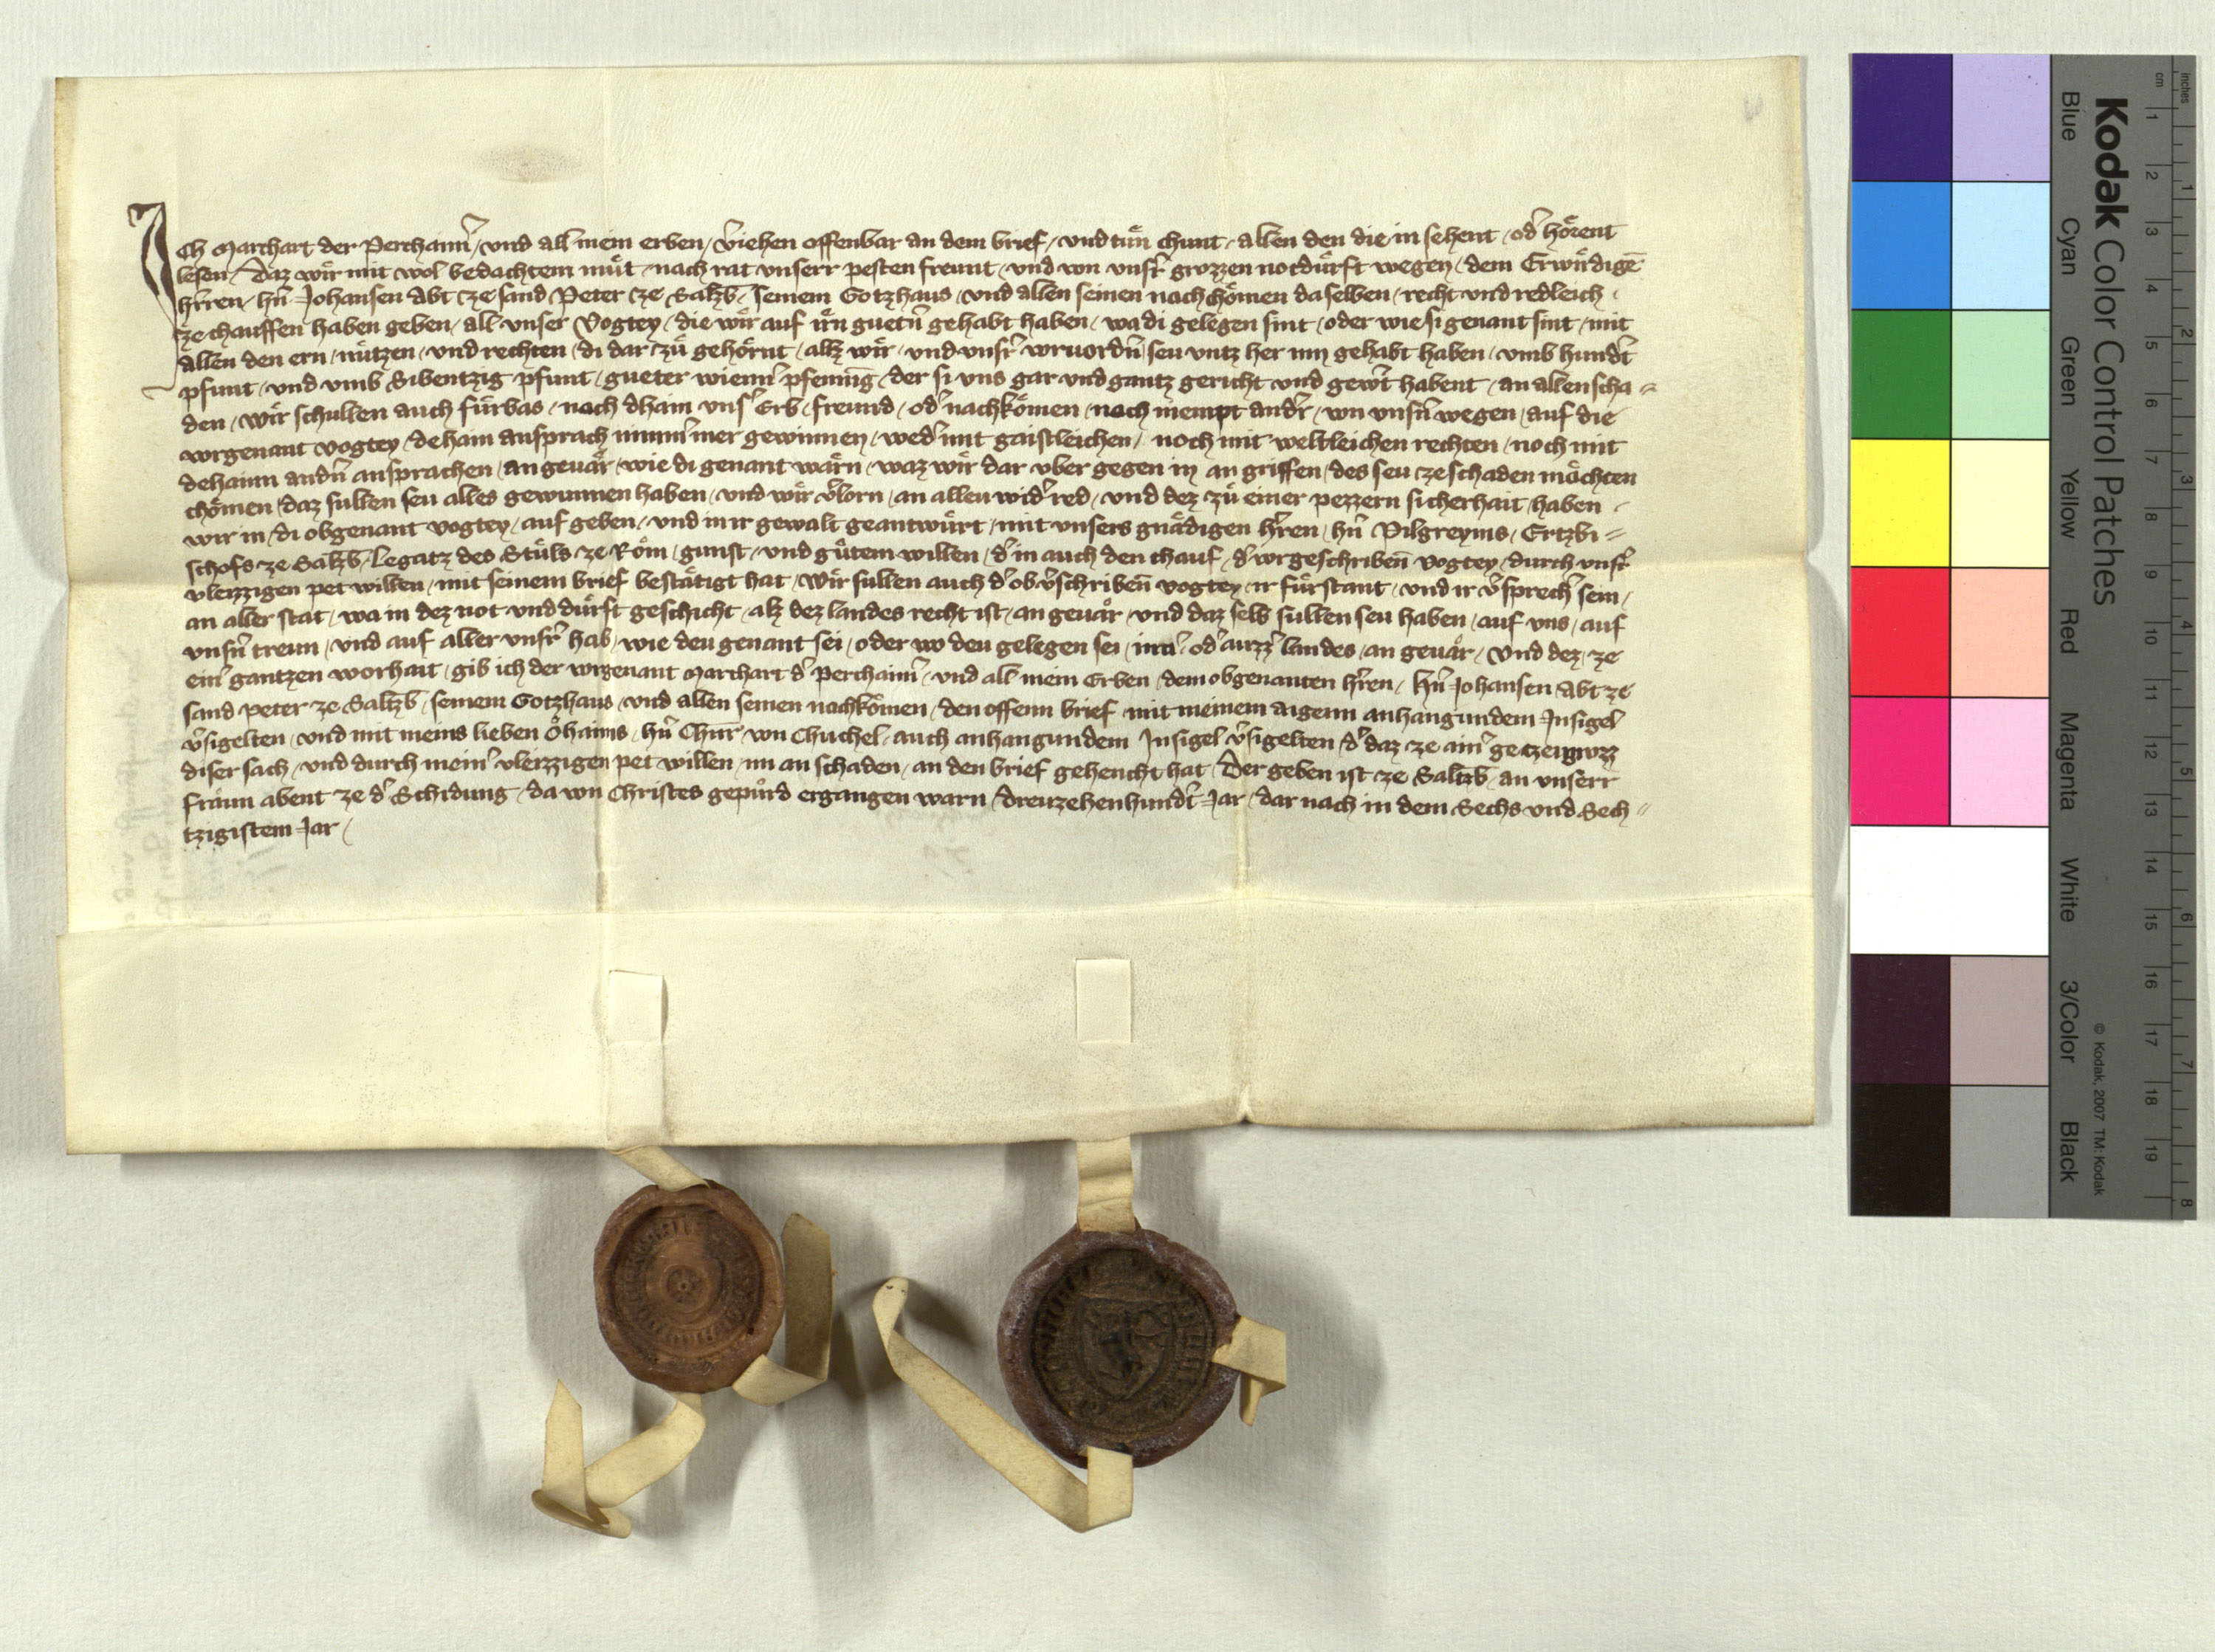 Ich Marchart der Perchaim̄ / vnd all mein erben / v̄iehen offenbar an dem brief / vnd tuͤn chunt / allen den die in sehent / od̄ hoͤrent
lesen / Daz wir mit wol bedachtem muͤt / nach rat vnserr pesten freunt / vnd von vnsr̄ grozzen notduͤrft wegen / dem Erwirdigē
hr̄ren / hn̄ Johansen Abt ze sand Peter ze Saltzb̄ / seinem Gotzhaus / vnd allen seinen nachchoͤmen daselben / recht vnd redleich /
ze chauffen haben geben / all vnser Vogtey / die wir auf irn guetn̄ gehabt haben / wa di gelegen sint / oder wie si genant sint / mit
allen den ern / nuͤtzen / vnd rechten / di dar zuͤ gehoͤrnt / allz wir / vnd vnsr̄ vorvordn̄ seu vntz her inn gehabt haben / vmb hundt̄
pfunt / vnd vmb Sibentzig pfunt / gueter wienn̄ pfenning / der si vns gar vnd gantz gericht vnd gewt̄ habent / an allen scha =
den / wir schullen auch fuͤrbas / noch dhain vns̄ Erb / freund / od̄ nachkoͤmen / noch niempt andr̄ / von vnsn̄ wegen / auf die
vorgenant vogtey / dehain ansprach nimm̄ mer gewinnen / wed̄ mit gaistleichen / noch mit weltleichen rechten / noch mit
dehainn andn̄ ansprachen / an geuaͤr / wie di genant waͤrn / waz wir dar vber gegen in an griffen / des seu ze schaden moͤchten
choͤmen / daz sullen seu alles gewunnen haben / vnd wir v̄lorn / an allen wid̄ red / vnd dez zuͤ einer pezzern sicherhait / haben /
wir in / di obgenant vogtey / auf geben / vnd in ir gewalt geantwuͤrt / mit vnsers gnaͤdigen hr̄ren / hn̄ Pilgreyms / Ertzbi =
schofs ze Saltzb̄ / Legatz des Stuͤls ze Roͤm / gunst / vnd guͤtem willen / d̄ in auch den chauf / d̄ vorgeschriben̄ vogtey / durch vnsr̄
vleizzigen pet willen / mit seinem brief bestaͤtigt hat / Wir sullen auch d̄ obv̄schriben̄ vogtey / ir fuͤrstant / vnd ir v̄sprech̄ sein /
an aller stat / wa in dez not vnd duͤrft geschicht / alz dez landes recht ist / an geuaͤr / vnd daz selb sullen seu haben / auf vns / auf
vnsn̄ treun / vnd auf aller vnsr̄ hab / wie deu genant sei / oder wo deu gelegen sei / inn̄ / od̄ auzz̄ landes / an geuaͤr / Vnd dez / ze
ein̄ gantzen worhait / gib ich der vorgenant Marchart d̄ Perchaim̄ / vnd all mein Erben / dem obgenanten hr̄ren / hn̄ Johansen Abt ze
sand Peter ze Saltzb̄ / seinem Gotzhaus / vnd allen seinen nachkoͤmen / den offenn brief / mit meinem aigenn anhangundem Insigel
v̄sigelten / vnd mit meins lieben Oͤhaims / hn̄ Chunr̄ von Chuchel / auch anhangundem Insigel v̄sigelten / d̄ daz ze ain̄ getzeugnuzz
diser sach / vnd durch mein̄ vleizzigen pet willen / im an schaden / an den brief gehencht hat / Der geben ist ze Saltzb̄ / an vnserr
fraun abent ze d̄ Schidung / da von Christes gepuͤrd ergangen warn / dreuzehenhundt̄ Jar / dar nach in dem Sechs vnd Sech =
tzigistem Jar /
Kodak Color Control Patches
Blue Cyan Green Yellow Red Magenta White 3/Color Black
© Kodak, 2007 TM: Kodak
cm 1 2 3 4 5 6 7 8 9 10 11 12 13 14 15 16 17 18 19
inches 1 2 3 4 5 6 7 8